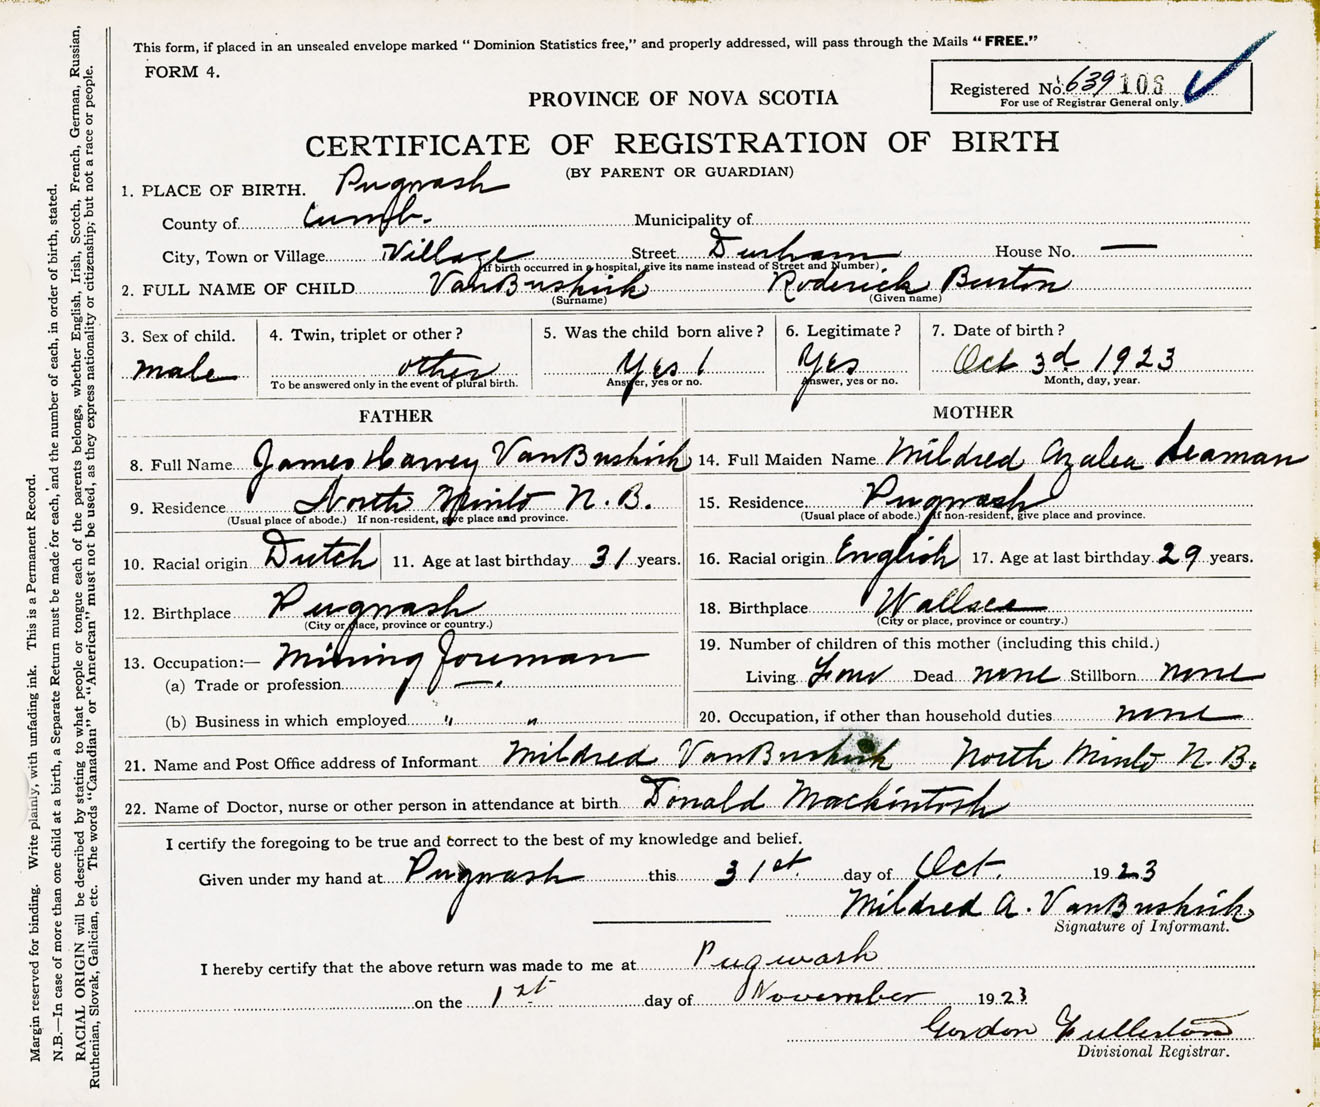 This form, if placed in an unsealed envelope marked "Dominion Statistics free," and properly addressed, will pass through the Mails "FREE."
FORM 4.
Registered No. 639 108
For use of Registrar General only.
PROVINCE OF NOVA SCOTIA
CERTIFICATE OF REGISTRATION OF BIRTH
(BY PARENT OR GUARDIAN)
1. PLACE OF BIRTH. Pugwash
County of Cumb. Municipality of
City, Town or Village Village Street Durham House No. —
(If birth occurred in a hospital, give its name instead of Street and Number)
2. FULL NAME OF CHILD VanBuskirk Roderick Burton
(Surname) (Given name)
3. Sex of child. 4. Twin, triplet or other? 5. Was the child born alive? 6. Legitimate? 7. Date of birth?
male other Yes ! Yes Oct 3d 1923
To be answered only in the event of plural birth. Answer, yes or no. Answer, yes or no. Month, day, year.
FATHER MOTHER
8. Full Name James Harvey VanBuskirk 14. Full Maiden Name Mildred Azalea Seaman
9. Residence North Minto N. B. 15. Residence Pugwash
(Usual place of abode.) If non-resident, give place and province. (Usual place of abode.) If non-resident, give place and province.
10. Racial origin Dutch 11. Age at last birthday 31 years. 16. Racial origin English 17. Age at last birthday 29 years.
12. Birthplace Pugwash 18. Birthplace Wallace
(City or place, province or country.) (City or place, province or country.)
13. Occupation:— Mining Foreman 19. Number of children of this mother (including this child.)
(a) Trade or profession —. Living Four Dead none Stillborn none
(b) Business in which employed " " 20. Occupation, if other than household duties none
21. Name and Post Office address of Informant Mildred VanBuskirk North Minto N. B.
22. Name of Doctor, nurse or other person in attendance at birth Donald Mackintosh
I certify the foregoing to be true and correct to the best of my knowledge and belief.
Given under my hand at Pugwash this 31st day of Oct. 1923
Mildred A. VanBuskirk
Signature of Informant.
I hereby certify that the above return was made to me at Pugwash
on the 1st day of November 1923
Gordon Fullerton
Divisional Registrar.
Margin reserved for binding. Write plainly, with unfading ink. This is a Permanent Record.
N.B.—In case of more than one child at a birth, a Separate Return must be made for each, and the number of each, in order of birth, stated.
RACIAL ORIGIN will be described by stating to what people or tongue each of the parents belongs, whether English, Irish, Scotch, French, German, Russian,
Ruthenian, Slovak, Galician, etc. The words "Canadian" or "American" must not be used, as they express nationality or citizenship; but not a race or people.